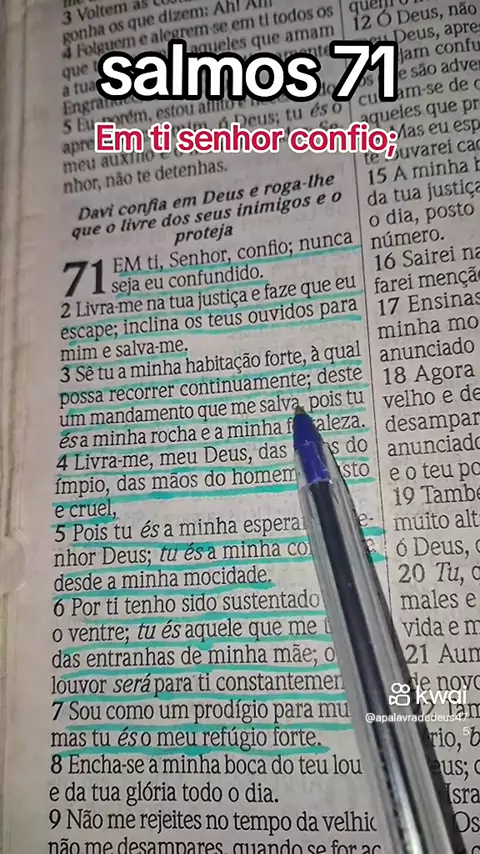 salmos 71
Em ti senhor confio;
3 Voltem as co
gonha os que dizem: Ah! Ah!
4 Folguem e alegrem-se em ti todos os
que aqueles que amam
a tua
Engra
5 Eu porém, estou aflito e
Deus; tu és o
meu auxílio e o
nhor, não te detenhas.
Davi confia em Deus e roga-lhe
que o livre dos seus inimigos e o
proteja
71 EM ti, Senhor, confio; nunca
seja eu confundido.
2 Livra-me na tua justiça e faze que eu
escape; inclina os teus ouvidos para
mim e salva-me.
3 Sê tu a minha habitação forte, à qual
possa recorrer continuamente; deste
um mandamento que me salva, pois tu
és a minha rocha e a minha f aleza.
4 Livra-me, meu Deus, das os do
ímpio, das mãos do homem sto
e cruel,
5 Pois tu és a minha espera e-
nhor Deus; tu és a minha co
desde a minha mocidade.
6 Por ti tenho sido sustentado
o ventre; tu és aquele que me
das entranhas de minha mãe; o
louvor será para ti constantemen
7 Sou como um prodígio para mu
mas tu és o meu refúgio forte.
8 Encha-se a minha boca do teu lou
e da tua glória todo o dia.
9 Não me rejeites no tempo da velhic
não me desampares, quando se for ac
quem
12 Ó Deus, não
Deus, apre
jam confu
e são adve
am-se de
aqueles que pr
las eu esp
te louvarei cad
15 A minha b
da tua justiça
o dia, posto
número.
16 Sairei na
farei mençã
17 Ensinas
minha mo
anunciado
18 Agora
velho e de
desampar
anunciado
e o teu po
19 També
muito alt
ó Deus, q
20 Tu, q
males e
vida e m
21 Aum
de novo
22 Tam
rio, b
eus; c
Isra
Os
kwai
@apalavradedeus47